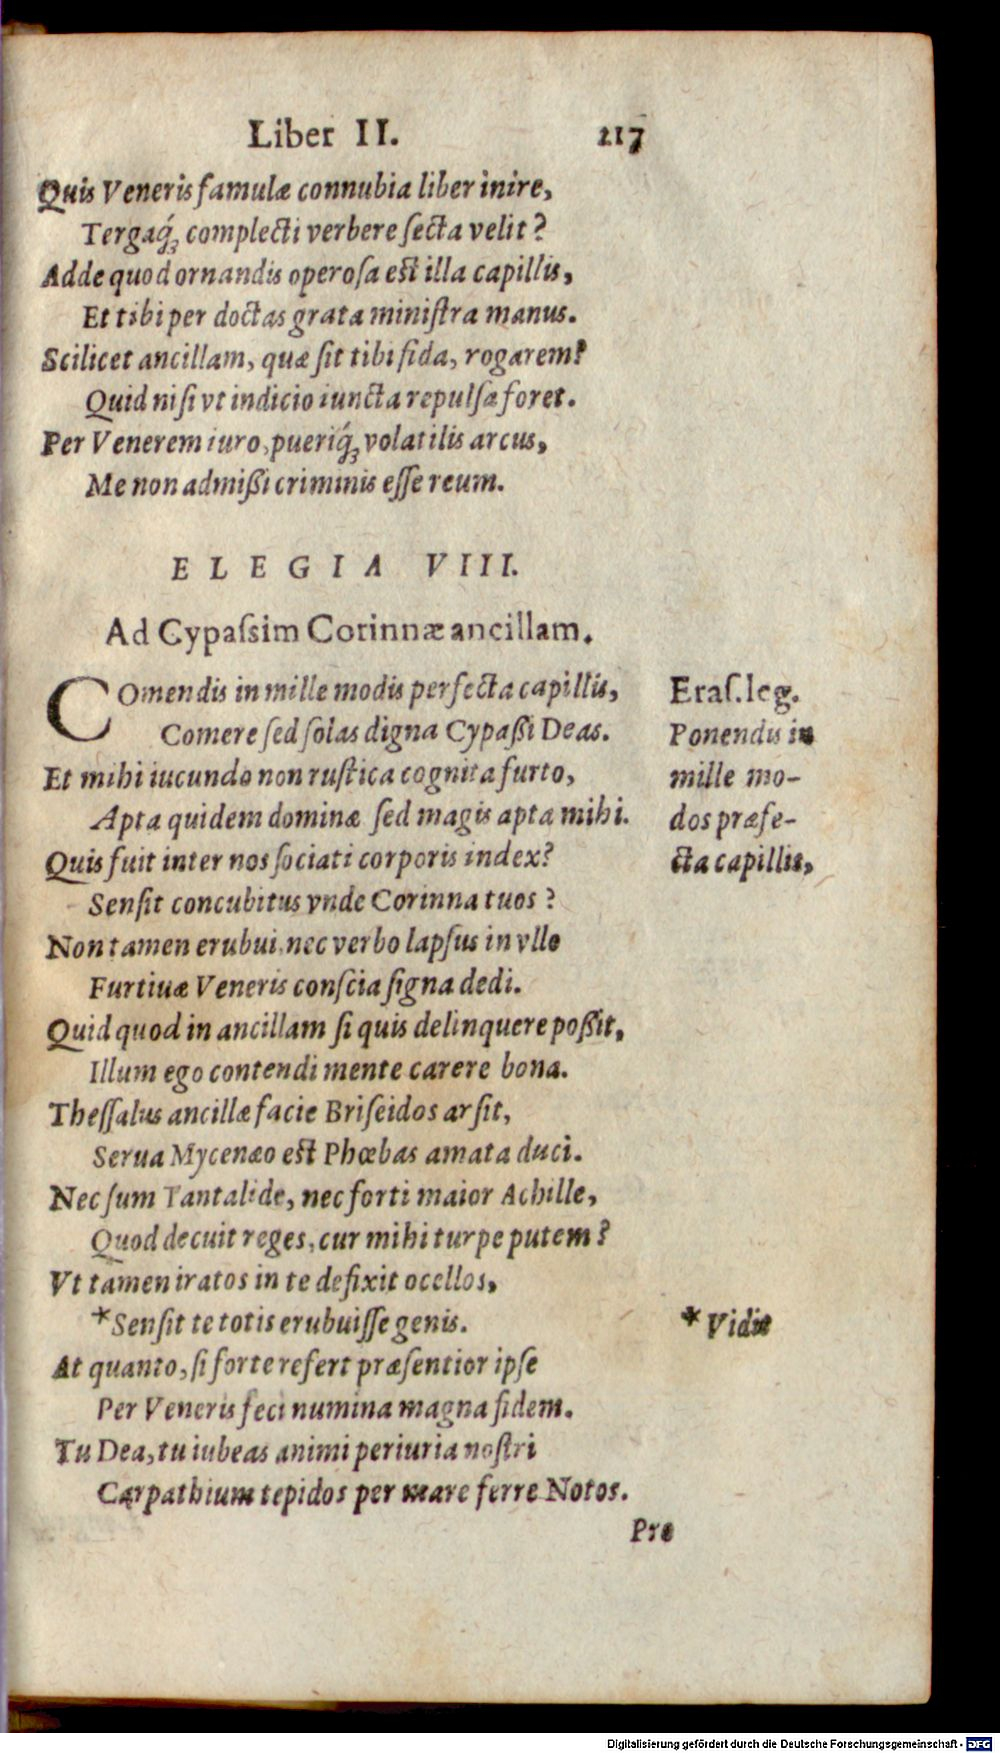 Liber II. 217
Quis Veneris famulæ connubia liber inire,
Tergaq́ꝫ complecti verbere ſecta velit?
Adde quod ornandis operoſa est illa capillis,
Et tibi per doctas grata miniſtra manus.
Scilicet ancillam, quæ ſit tibi fida, rogarem?
Quid niſi vt indicio iuncta repulſa foret.
Per Venerem iuro, pueriq́ꝫ volatilis arcus,
Me non admißi criminis eſſe reum.
ELEGIA VIII.
Ad Cypaſsim Corinnæ ancillam.
COmendis in mille modis perfecta capillis,
Comere ſed ſolas digna Cypaßi Deas.
Et mihi iucundo non ruſtica cognita furto,
Apta quidem dominæ ſed magis apta mihi.
Quis fuit inter nos ſociati corporis index?
Senſit concubitus vnde Corinna tuos?
Non tamen erubui, nec verbo lapſus in vllo
Furtiuæ Veneris conſcia ſigna dedi.
Quid quod in ancillam ſi quis delinquere poßit,
Illum ego contendi mente carere bona.
Theſſalus ancillæ facie Briſeidos arſit,
Serua Mycenæo est Phœbas amata duci.
Nec ſum Tantalide, nec forti maior Achille,
Quod decuit reges, cur mihi turpe putem?
Vt tamen iratos in te defixit ocellos,
*Senſit te totis erubuiſſe genis.
At quanto, ſi forte refert præſentior ipſe
Per Veneris feci numina magna fidem.
Tu Dea, tu iubeas animi periuria noſtri
Carpathium tepidos per mare ferre Notos.
Præ
Eraſ. leg.
Ponendis in
mille mo-
dos præfe-
cta capillis,
* Vidit
Digitalisierung gefördert durch die Deutsche Forschungsgemeinschaft - DFG